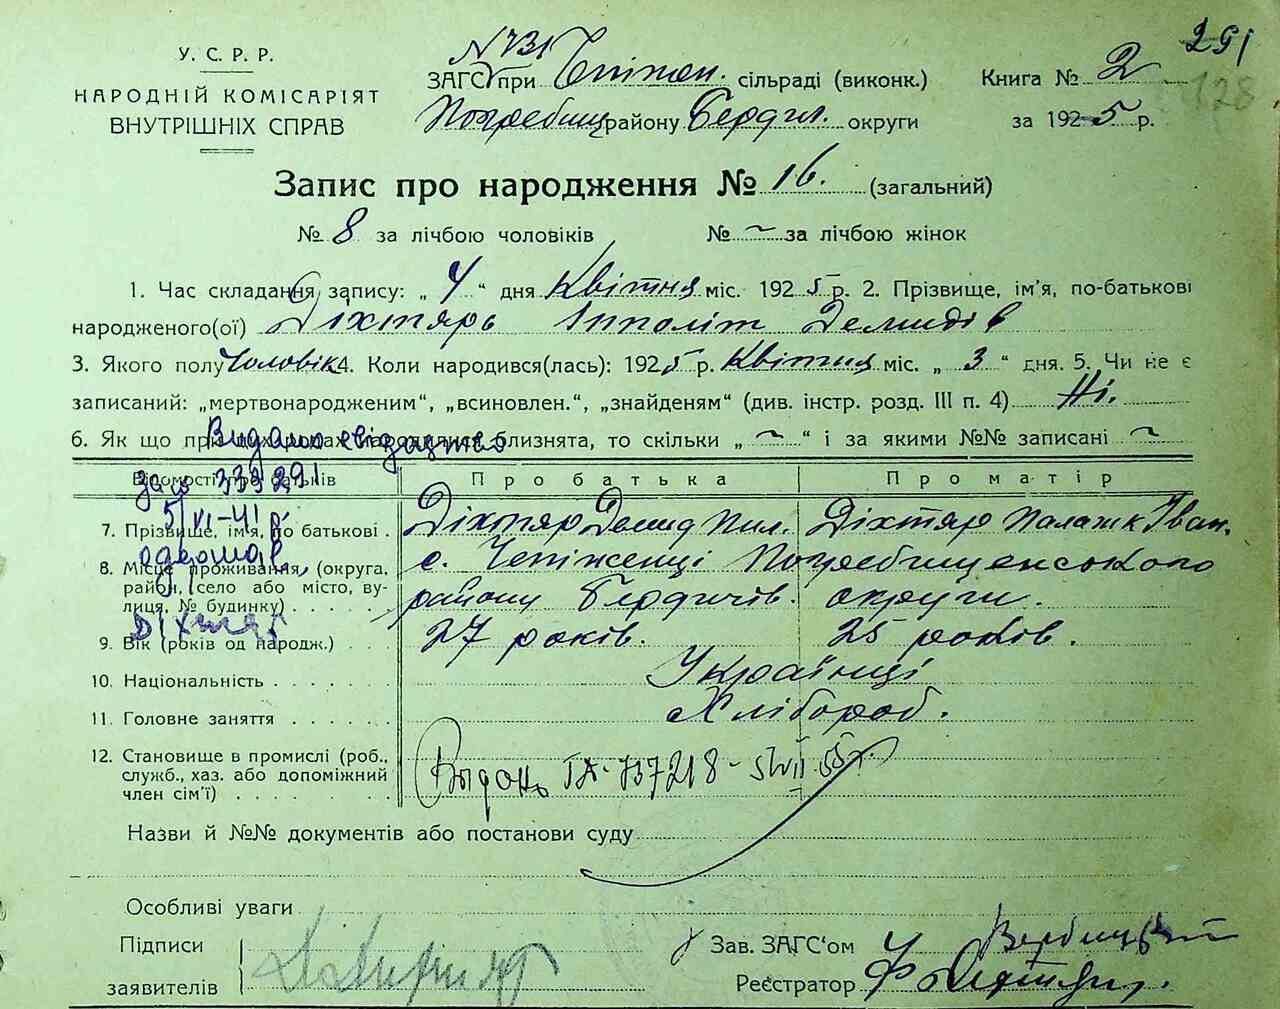 291
128
У. С. Р. Р.
НАРОДНІЙ КОМІСАРІЯТ
ВНУТРІШНІХ СПРАВ
N 731
ЗАГС при Чепіжен. сільраді (виконк.)
Погребищ району Бердич. округи
Книга № 2
за 1925 р.
Запис про народження № 16. (загальний)
№ 8 за лічбою чоловіків № ~ за лічбою жінок
1. Час складання запису: „ 4 “ дня Квітня міс. 1925 р. 2. Прізвище, ім'я, по-батькові
народженого(ої) Діхтярь Іпполіт Демидів
3. Якого полу Чоловік 4. Коли народився(лась): 1925 р. Квітня міс. „ 3 “ дня. 5. Чи не є
записаний: „мертвонародженим“, „всиновлен.“, „знайденям“ (див. інстр. розд. III п. 4) Ні.
6. Як що при цих родах народилися близнята, то скільки „ ~ “ і за якими №№ записані ~
Видано свідоцтво
Відомості про батьків Про батька Про матір
за № 339291
5/VI-41 р.
7. Прізвище, ім'я, по батькові . Діхтяр Демид Пил. Діхтяр Палажк Іван.
одержав
8. Місце проживання (округа, с. Чепіженці Погребищенського
район, село або місто, ву-
лиця, № будинку) району Бердичів. округи.
Діхтяр
9. Вік (років од народж.) . . . 27 років. 25 років.
10. Національність . . . . . . Українці
11. Головне заняття . . . . . . Хлібороб.
12. Становище в промислі (роб.,
служб., хаз. або допоміжний
член сім'ї) . . . . . . . .
Выдано ІА-737218
Назви й №№ документів або постанови суду
Особливі уваги
Підписи
заявителів
Зав. ЗАГС'ом Вербицький
Реєстратор